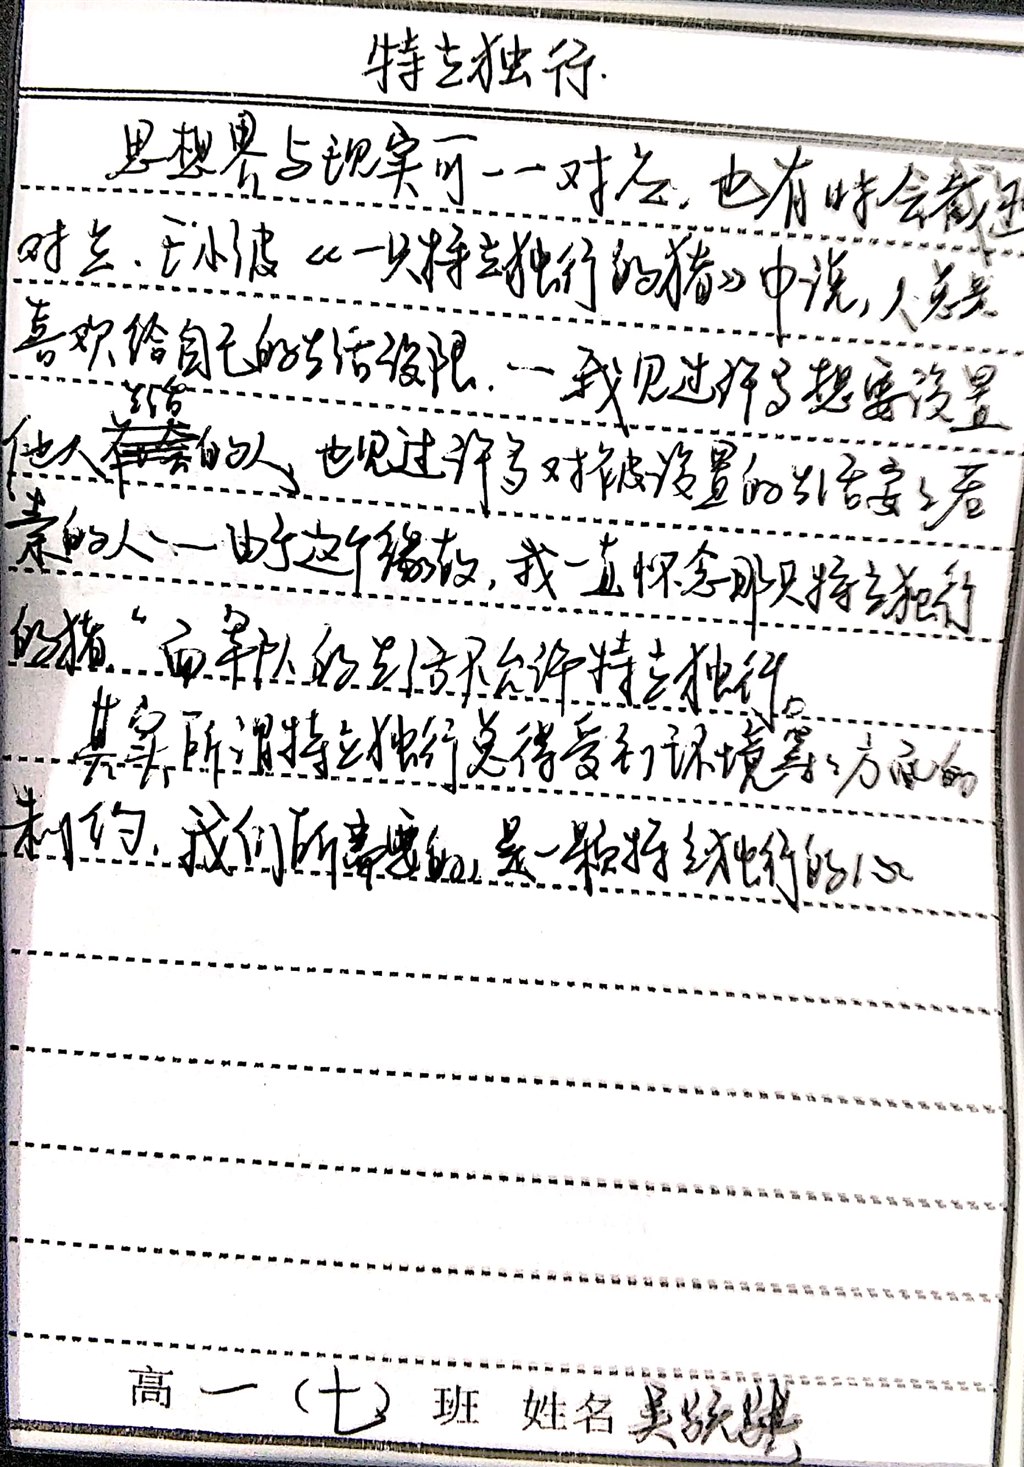 特立独行.
思想界与现实可一一对应,也有时会截
对立.王小波《一只特立独行的猪》中说,人总是
喜欢给自己的生活设限.一我见过许多想要设置
他人生活的人,也见过许多对被设置的生活安之若
素的人.一由于这个缘故,我一直怀念那只特立独行
的猪."而军队的生活不允许特立独行。
其实所谓特立独行总得受到环境等等方面的
制约.我们所需要的,是一颗特立独行的心
高一(七)班 姓名 吴